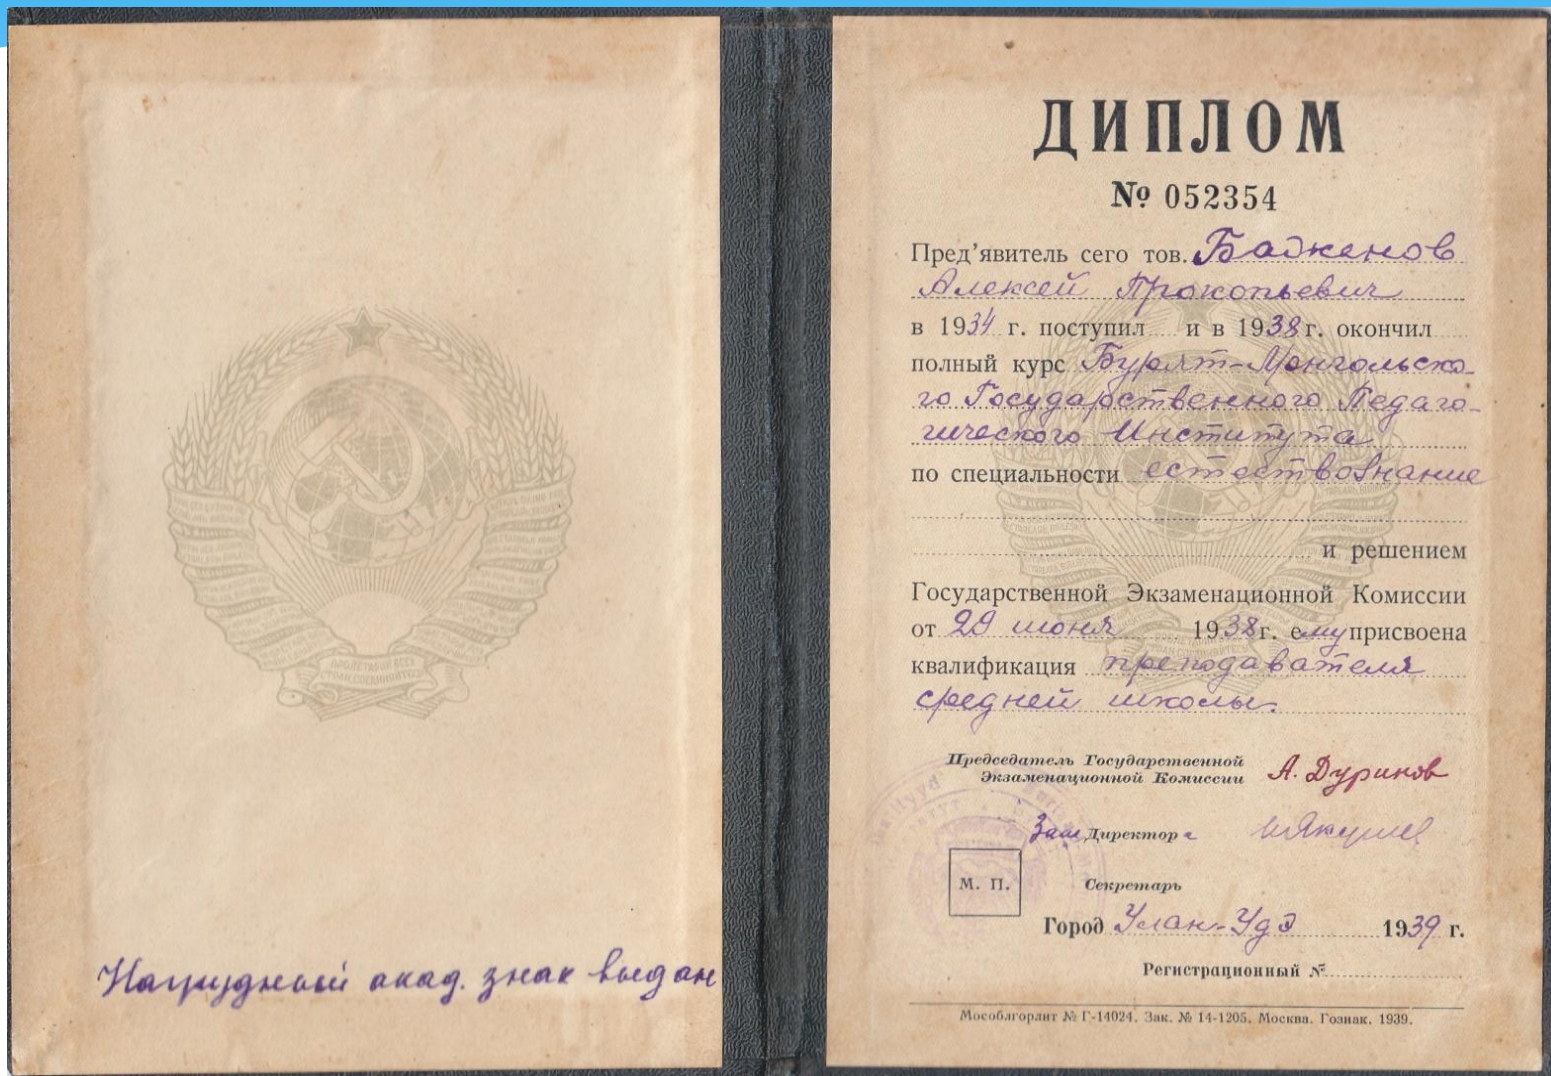 Нагрудный акад. знак выдан
ДИПЛОМ
№ 052354
Пред’явитель сего тов. Баженов
Алексей Прокопьевич
в 1934 г. поступил и в 1938 г. окончил
полный курс Бурят-Монгольско-
го Государственного Педаго-
гического Института
по специальности естествознание
и решением
Государственной Экзаменационной Комиссии
от 29 июня 1938 г. ему присвоена
квалификация преподавателя
средней школы.
Председатель Государственной
Экзаменационной Комиссии А. Дуринов
Зам Директора
М. П.
Секретарь
Город Улан-Удэ 1939 г.
Регистрационный №
Мособлгорлит № Г-14024. Зак. № 14-1205. Москва. Гознак. 1939.